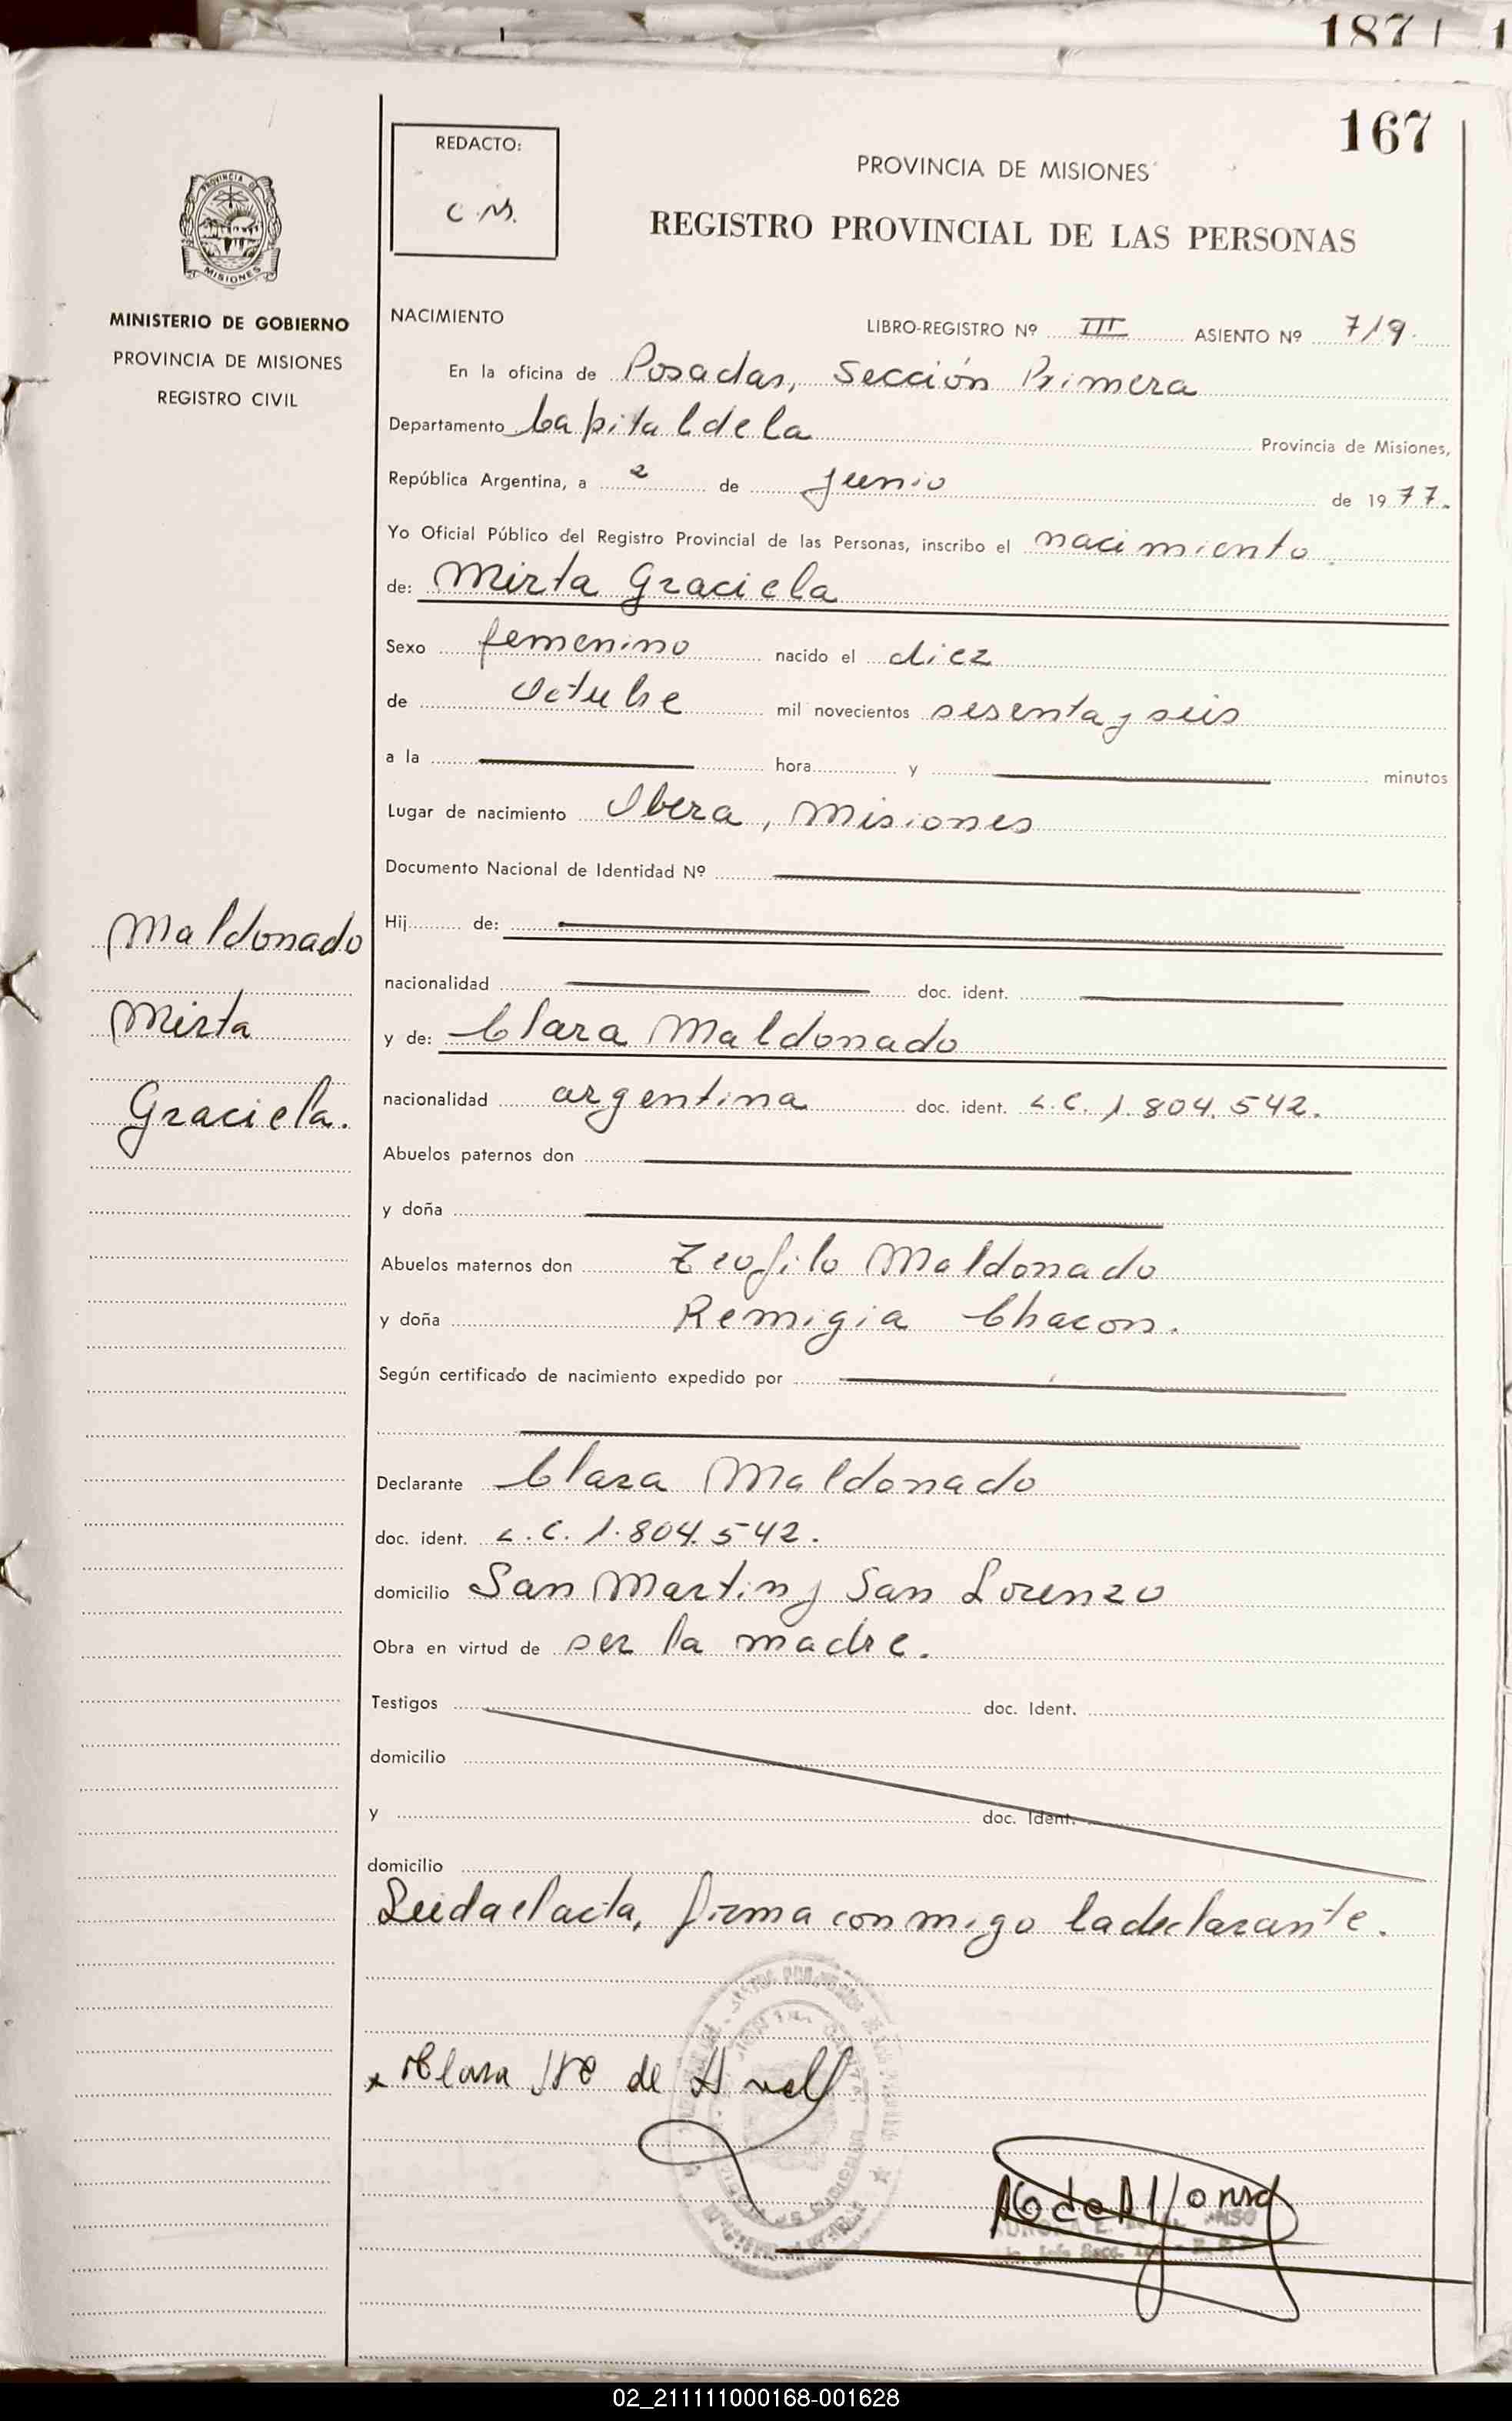 187 1
167
REDACTO:
C.M.
PROVINCIA DE MISIONES
REGISTRO PROVINCIAL DE LAS PERSONAS
PROVINCIA DE
MISIONES
MINISTERIO DE GOBIERNO
PROVINCIA DE MISIONES
REGISTRO CIVIL
NACIMIENTO
LIBRO-REGISTRO Nº III ASIENTO Nº 719.
En la oficina de Posadas, Sección Primera
Departamento Capital de la Provincia de Misiones,
República Argentina, a 2 de Junio de 1977.
Yo Oficial Público del Registro Provincial de las Personas, inscribo el nacimiento
de: Mirta Graciela
Sexo femenino nacido el diez
de Octubre mil novecientos sesenta y seis
a la hora y minutos
Lugar de nacimiento Obera, Misiones
Documento Nacional de Identidad Nº
Hij de:
nacionalidad doc. ident.
y de: Clara Maldonado
nacionalidad argentina doc. ident. L.C. 1.804.542.
Abuelos paternos don
y doña
Abuelos maternos don Teofilo Maldonado
y doña Remigia Chacon.
Según certificado de nacimiento expedido por
Declarante Clara Maldonado
doc. ident. L.C. 1.804.542.
domicilio San Martin y San Lorenzo
Obra en virtud de ser la madre.
Testigos doc. Ident.
domicilio
y doc. Ident.
domicilio
Leida el acta, firma conmigo la declarante.
Maldonado
Mirta
Graciela.
x Clara de
02_211111000168-001628